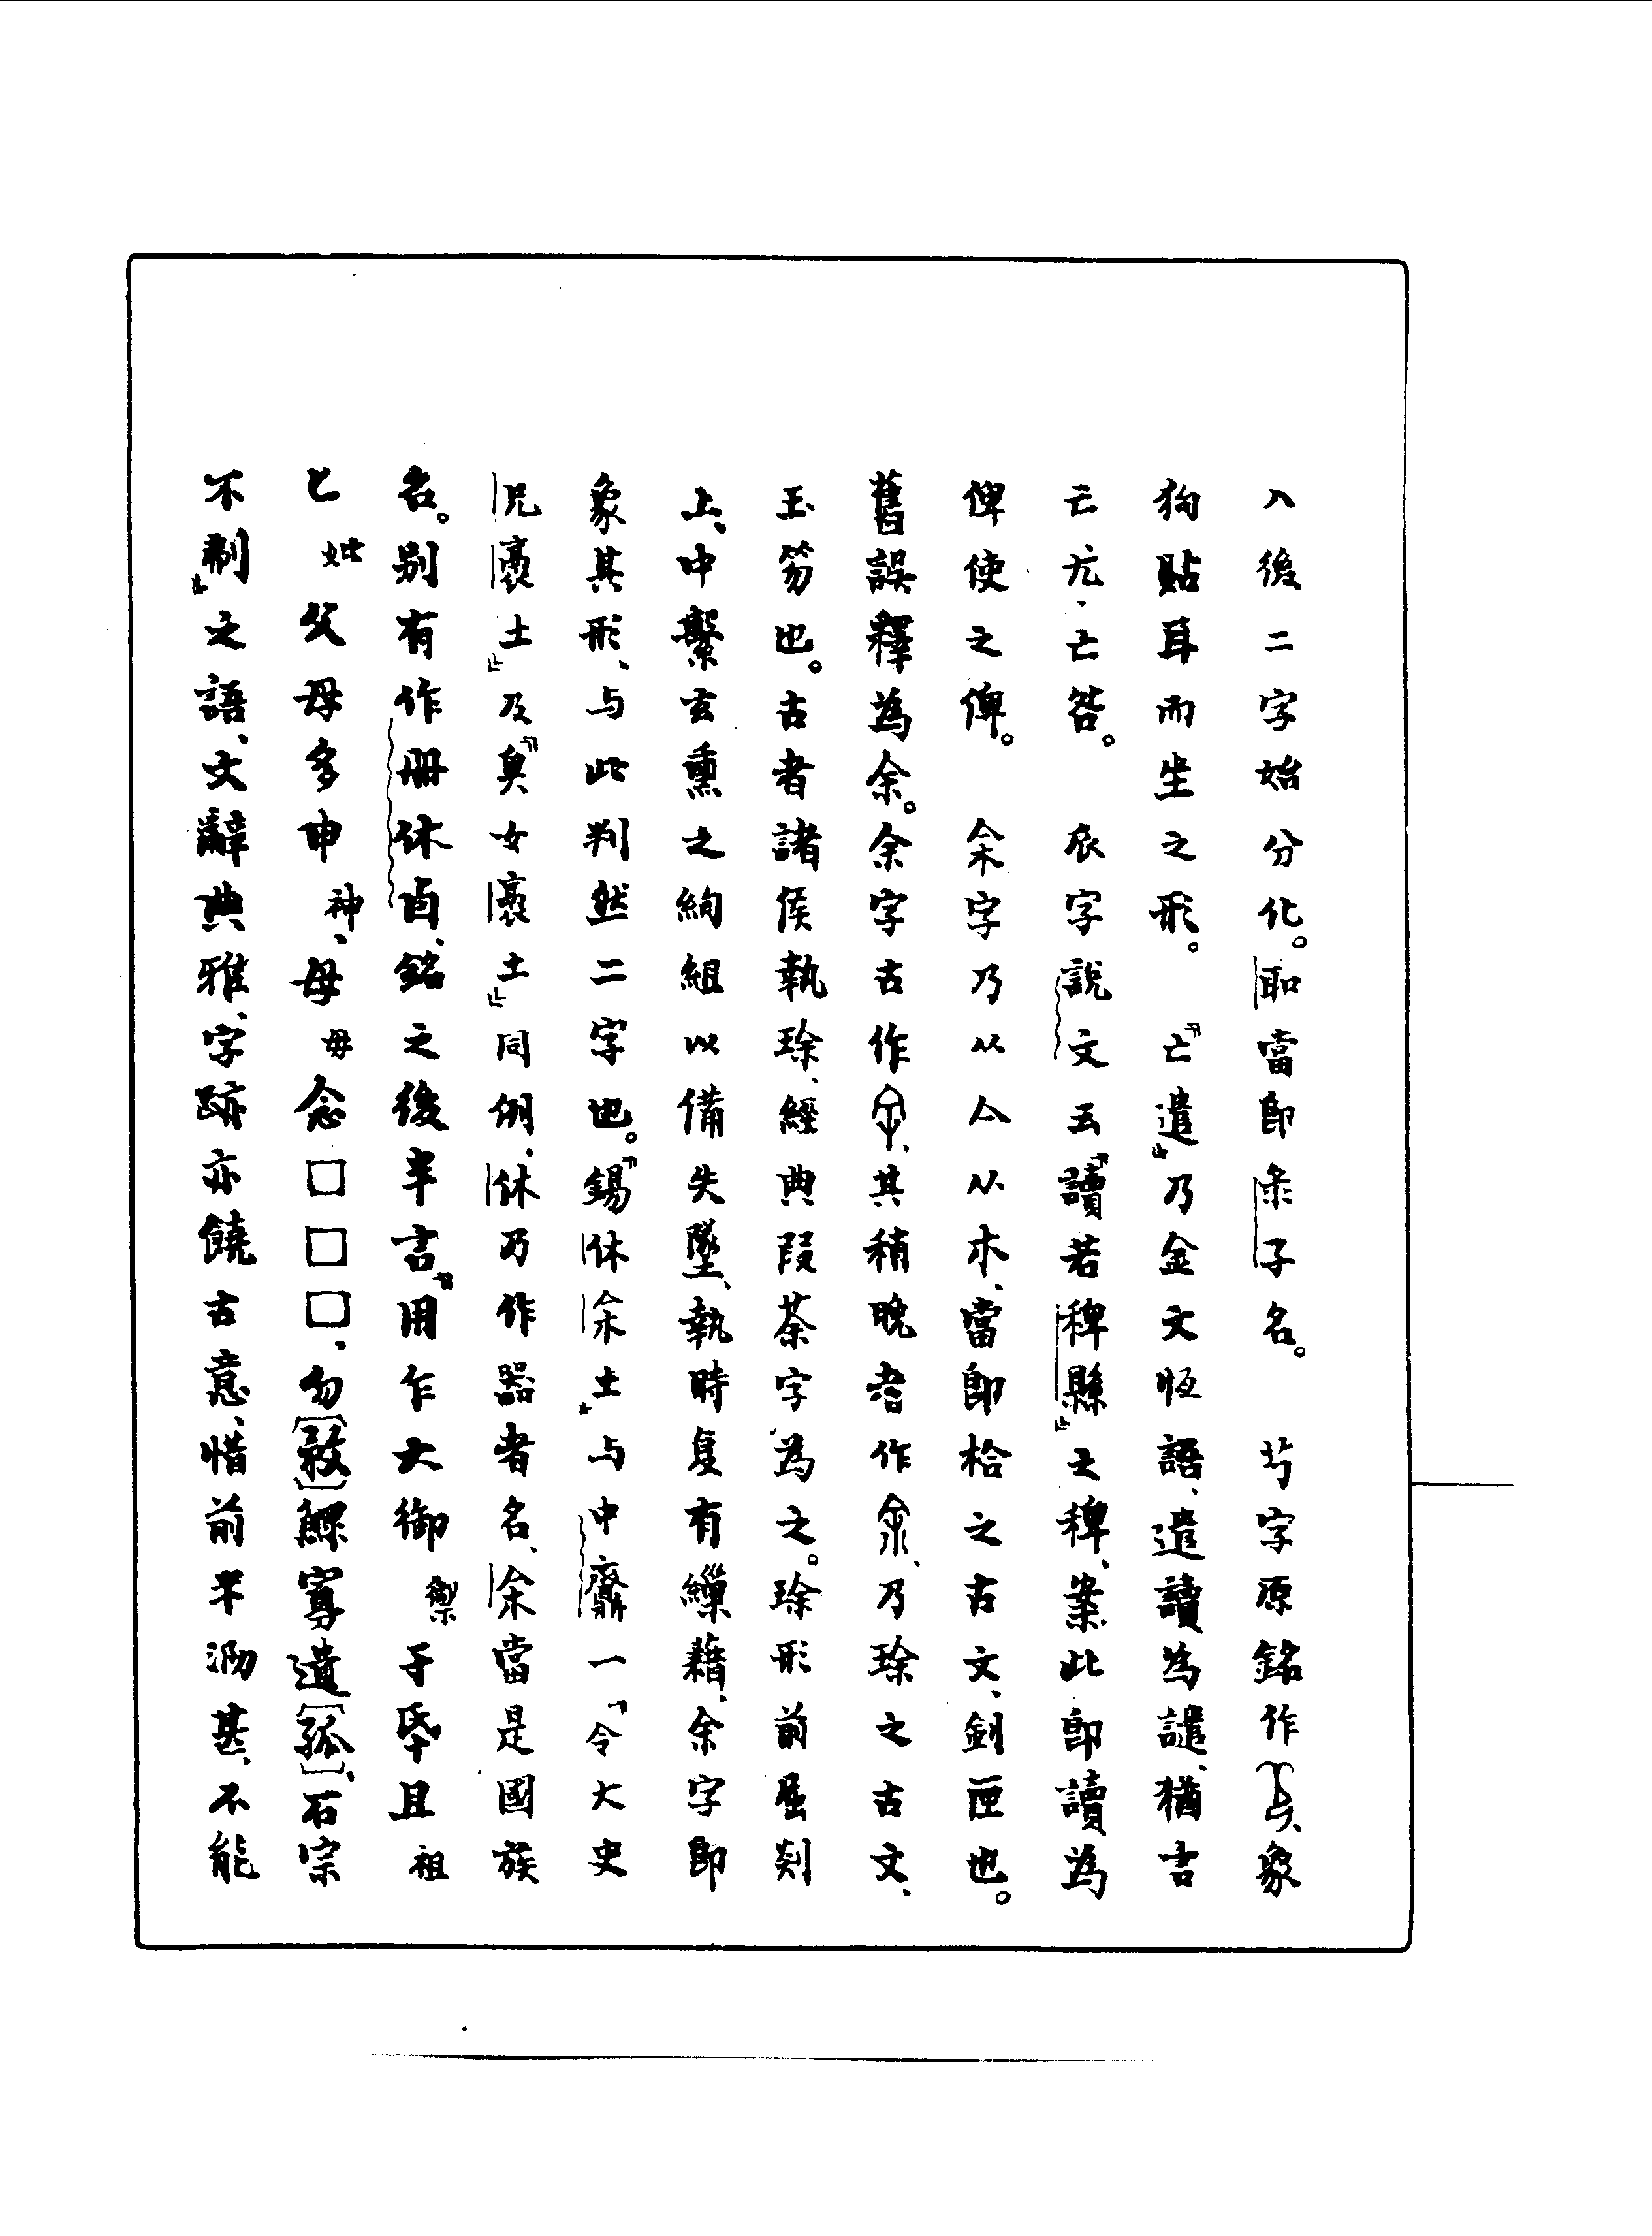 入後二字始分化。耴當即彔子名。 芍字原銘作、象
狗貼耳而坐之形。 「亡遣」乃金文恆語、遣讀為譴、猶言
亡尤、亡咎。 𠂢字說文云「讀若稗縣」之稗、案此即讀為
俾使之俾。 余字乃从亼从木、當即枱之古文、劍匣也。
舊誤釋為余。余字古作、其稍晚者作、乃瑹之古文、
玉笏也。古者諸侯執瑹、經典叚荼字為之。瑹形前屈剡
上、中繫玄纁之絢組以備失墜、執時复有繅藉、余字即
象其形、与此判然二字也。「錫休余土」与中齋一「令大史
兄褱土」及「臭女褱土」同例、休乃作器者名、余當是國族
名。別有作冊休卣、銘之後半言「用乍大御禦于氒且祖
匕妣父母多申神、母毋念□□□、勿〔㪤〕鰥寡遺〔孤〕、石宗
不刜」之語、文辭典雅、字跡亦饒古意、惜前半泐甚、不能